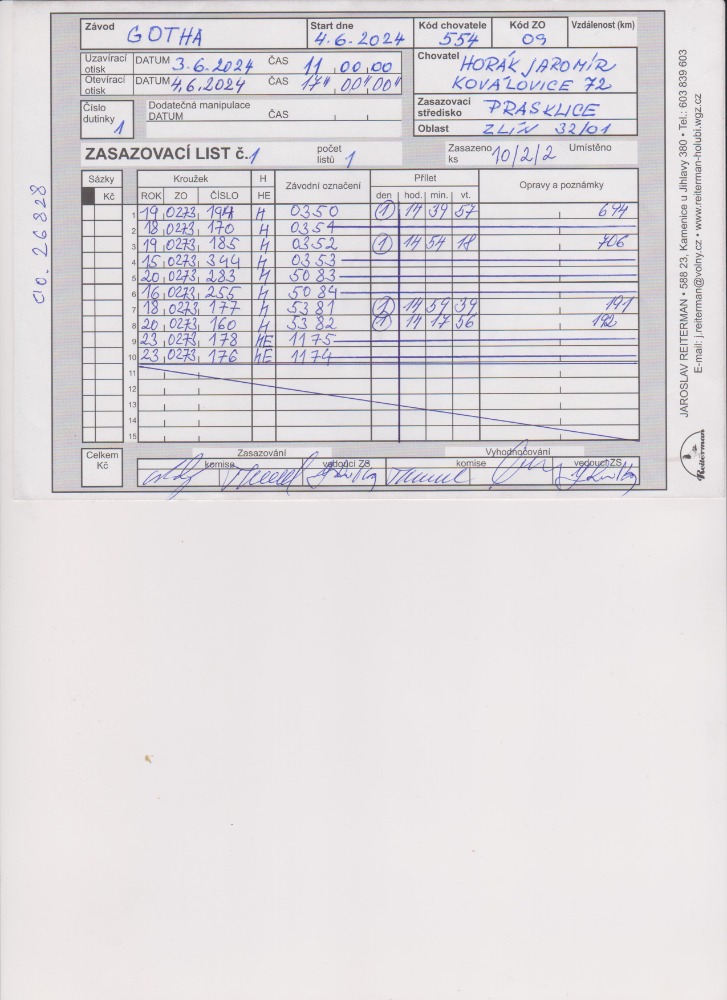 Závod GOTHA Start dne 4.6.2024 Kód chovatele 554 Kód ZO 09 Vzdálenost (km)
Uzavírací otisk DATUM 3.6.2024 ČAS 11 00 00
Otevírací otisk DATUM 4.6.2024 ČAS 17" 00" 00"
Chovatel HORÁK JAROMÍR
KOVÁLOVICE 72
Číslo dutinky 1 Dodatečná manipulace
DATUM ČAS
Zasazovací středisko PRASKLICE
Oblast ZLÍN 32/01
ZASAZOVACÍ LIST č. 1 počet listů 1 Zasazeno ks 10/2/2 Umístěno
Sázky Kroužek H Závodní označení Přílet Opravy a poznámky
Kč ROK ZO ČÍSLO HE den hod. min. vt.
1 19 0273 194 H 0350 (1) 14 39 57 644
2 18 0273 170 H 0351
3 19 0273 185 H 0352 (1) 14 54 18 706
4 15 0273 344 H 0353
5 20 0273 283 H 5083
6 16 0273 255 H 5084
7 18 0273 177 H 5381 (1) 14 59 39 191
8 20 0273 160 H 5382 (1) 14 17 56 192
9 23 0273 178 HE 1175
10 23 0273 176 HE 1174
11
12
13
14
15
Celkem Kč Zasazování Vyhodnocování
komise vedoucí ZS komise vedoucí ZS
čo. 26828
JAROSLAV REITERMAN • 588 23, Kamenice u Jihlavy 380 • Tel.: 603 839 603
E-mail: j.reiterman@volny.cz • www.reiterman-holubi.wgz.cz
Reiterman